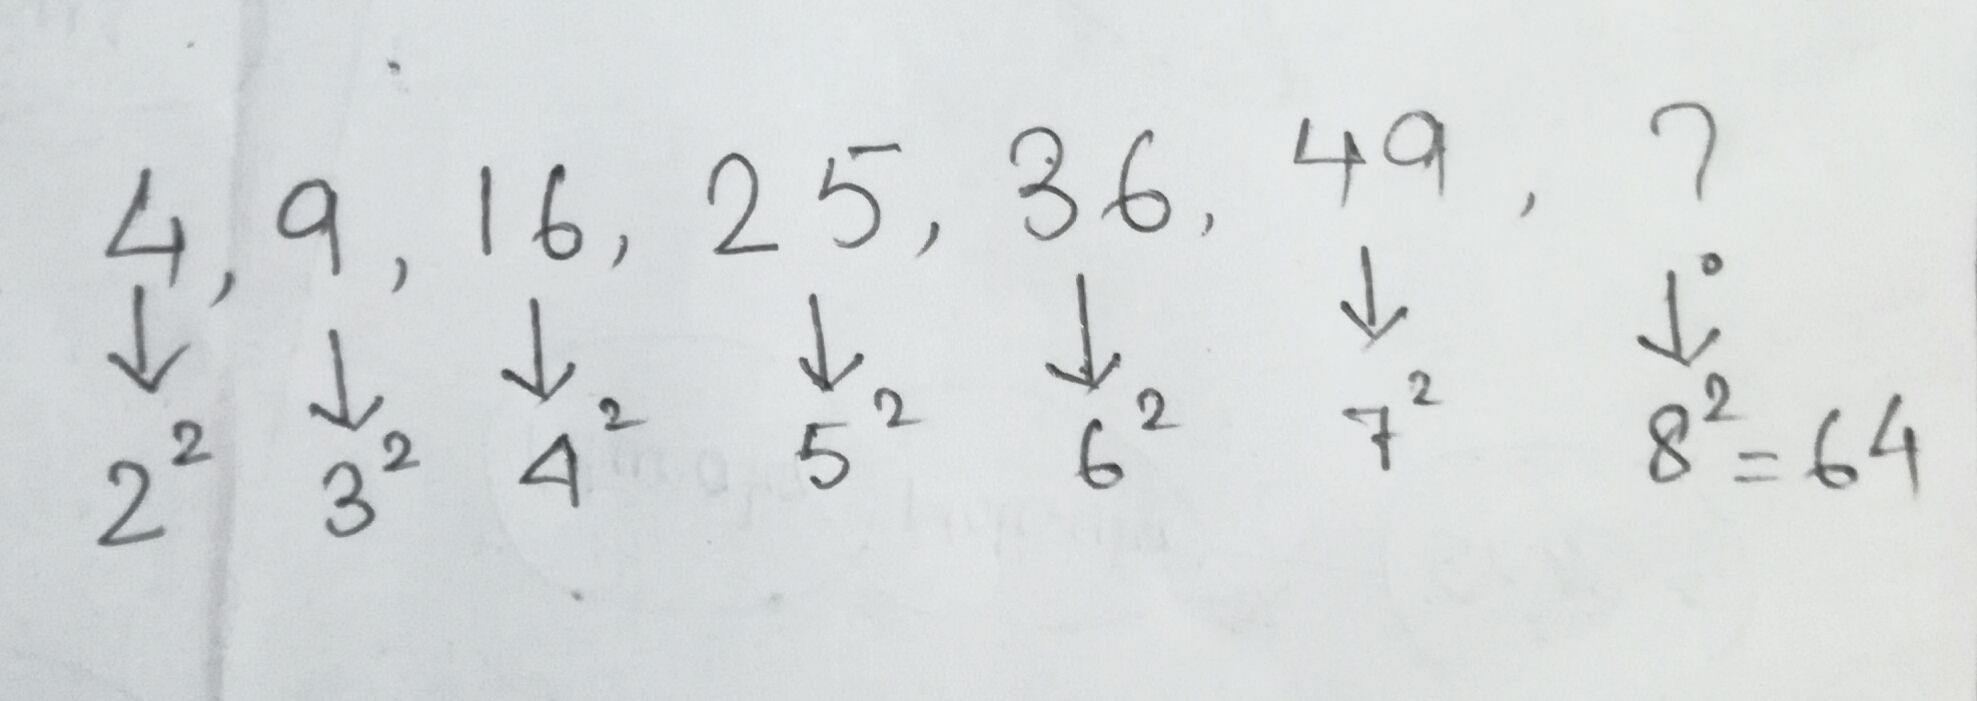 4, 9, 16, 25, 36, 49, ?
↓ ↓ ↓ ↓ ↓ ↓ ↓
2² 3² 4² 5² 6² 7² 8² = 64